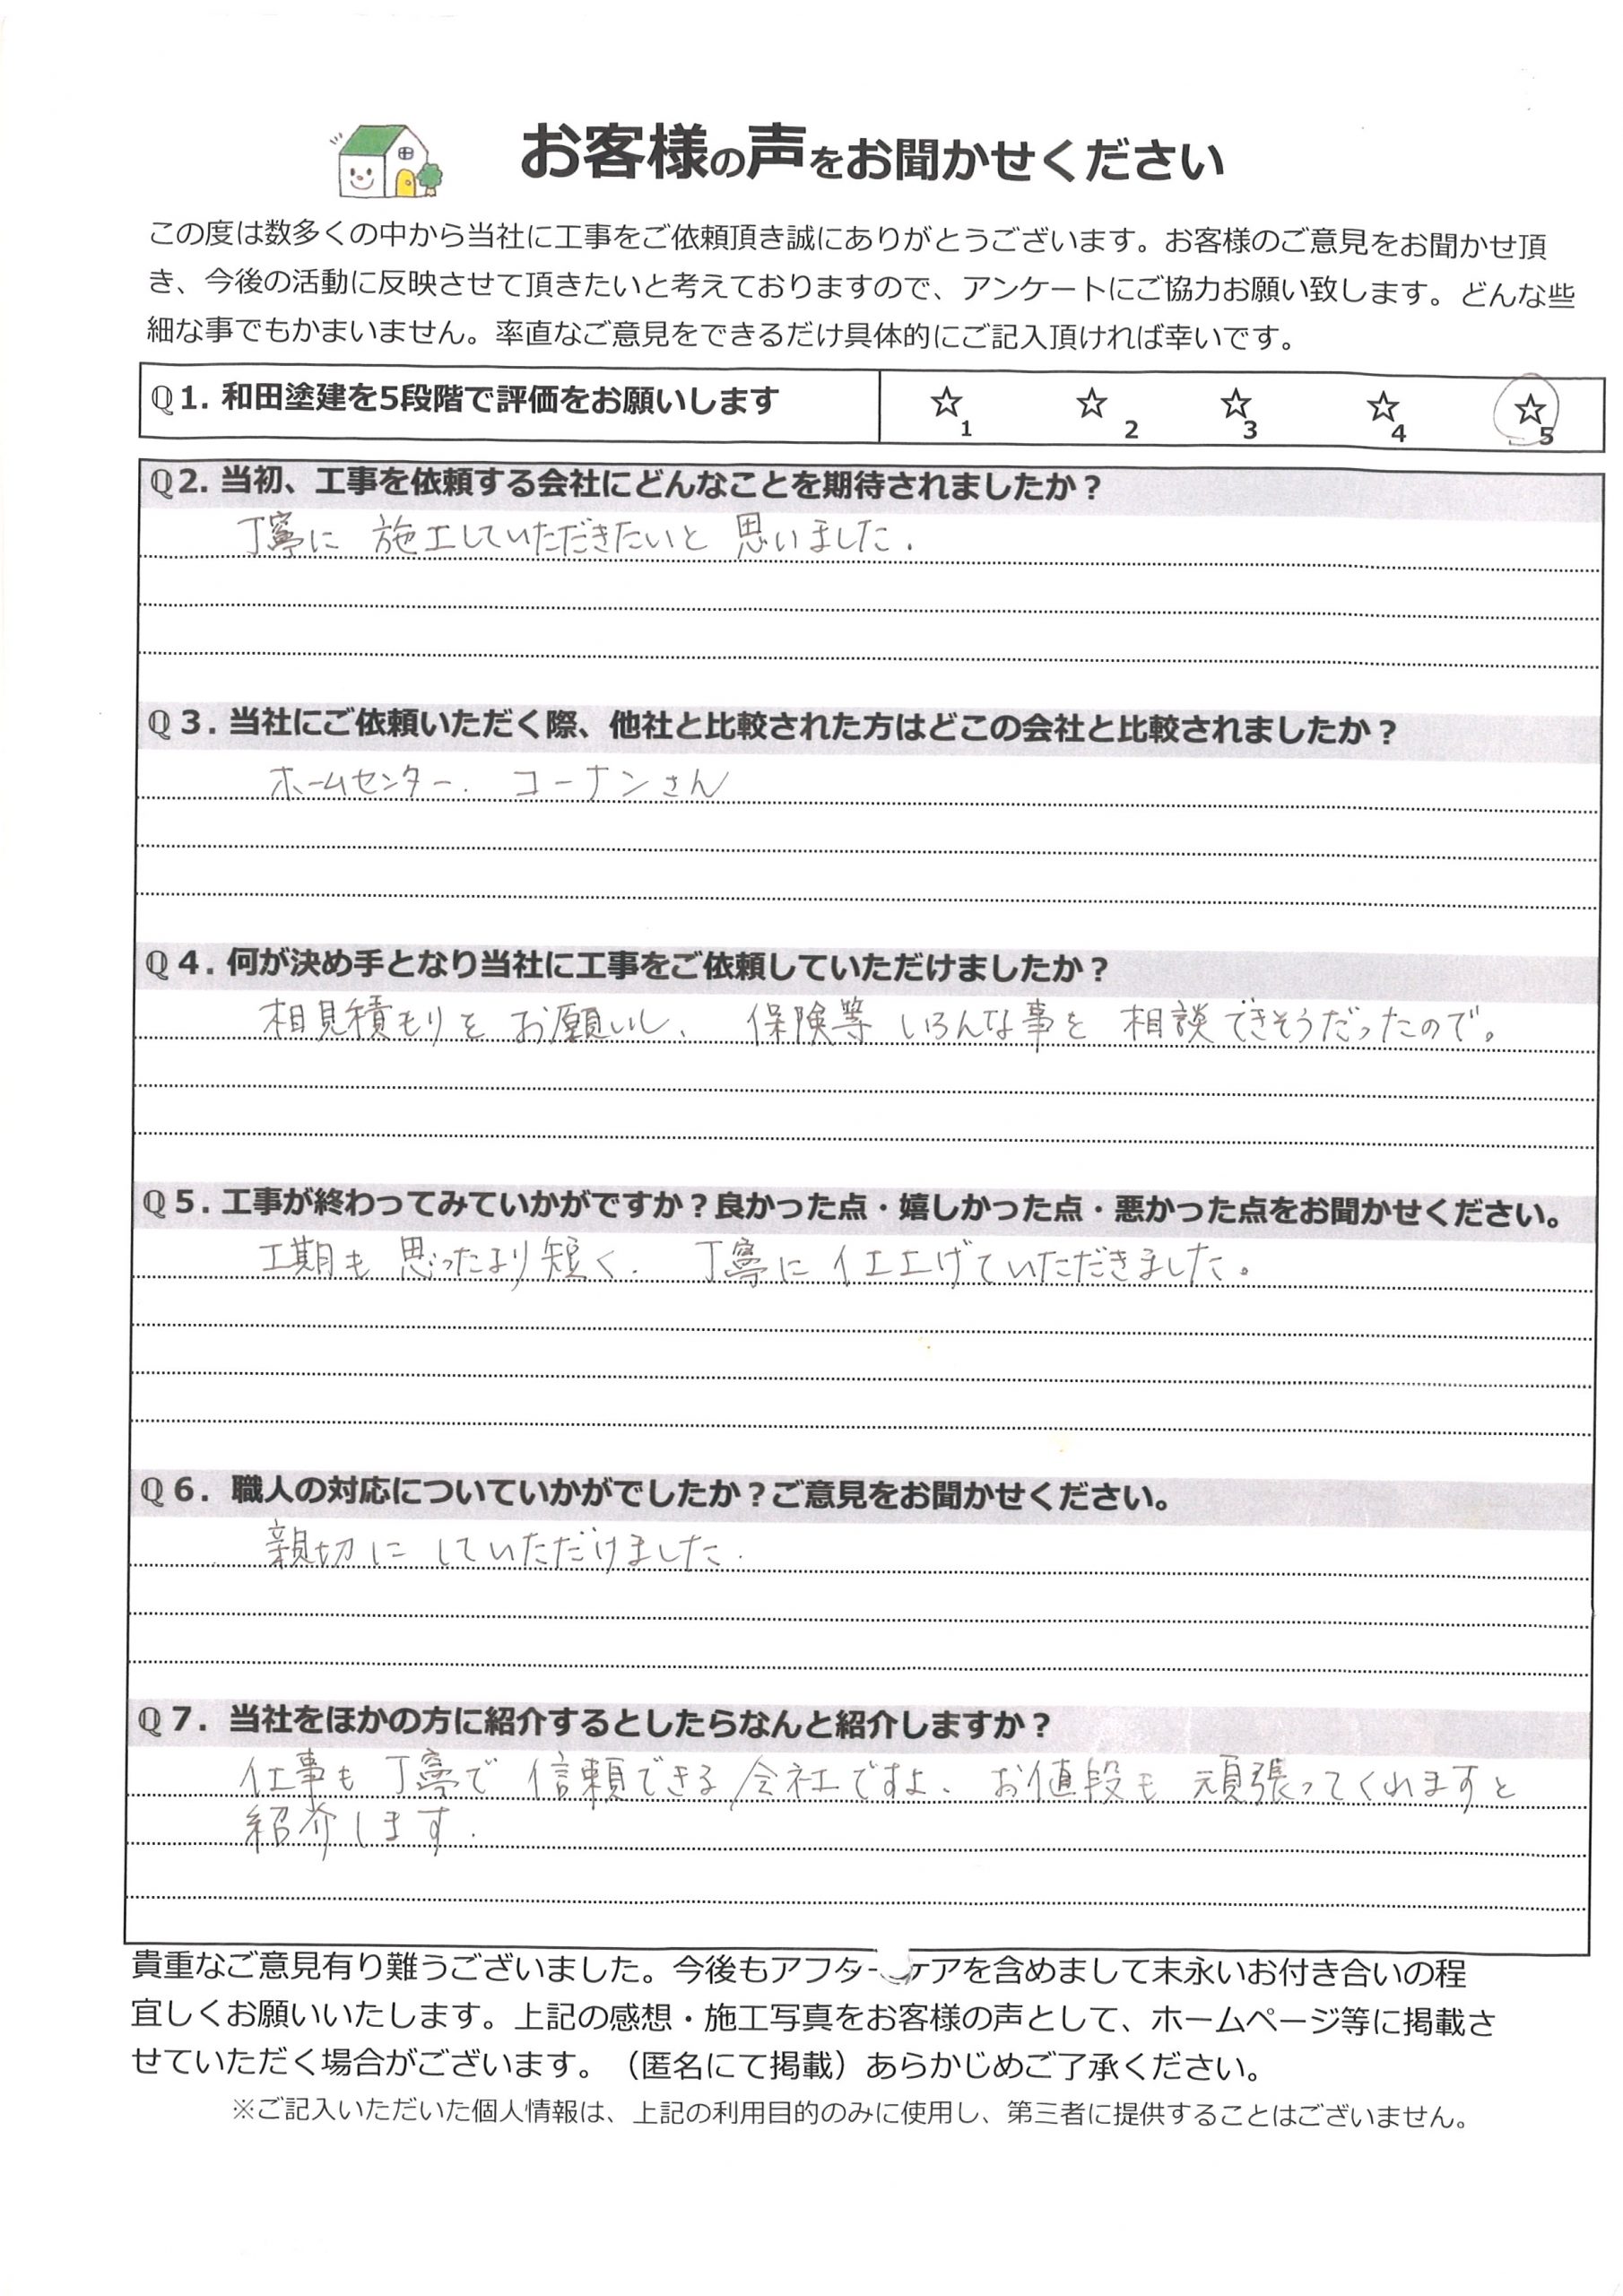 お客様の声をお聞かせください
この度は数多くの中から当社に工事をご依頼頂き誠にありがとうございます。お客様のご意見をお聞かせ頂
き、今後の活動に反映させて頂きたいと考えておりますので、アンケートにご協力お願い致します。どんな些
細な事でもかまいません。率直なご意見をできるだけ具体的にご記入頂ければ幸いです。
Q1. 和田塗建を5段階で評価をお願いします ☆1 ☆2 ☆3 ☆4 ☆5
Q2. 当初、工事を依頼する会社にどんなことを期待されましたか？
丁寧に 施工していただきたいと 思いました.
Q３. 当社にご依頼いただく際、他社と比較された方はどこの会社と比較されましたか？
ホームセンター. コーナンさん
Q４. 何が決め手となり当社に工事をご依頼していただけましたか？
相見積もりを お願いし、 保険等 いろんな事を 相談できそうだったので。
Q５. 工事が終わってみていかがですか？良かった点・嬉しかった点・悪かった点をお聞かせください。
工期も 思ったより短く. 丁寧に仕上げていただきました。
Q６. 職人の対応についていかがでしたか？ご意見をお聞かせください。
親切に していただけました.
Q７. 当社をほかの方に紹介するとしたらなんと紹介しますか？
仕事も 丁寧で 信頼できる 会社ですよ、 お値段も 頑張ってくれますと
紹介します.
貴重なご意見有り難うございました。今後もアフターケアを含めまして末永いお付き合いの程
宜しくお願いいたします。上記の感想・施工写真をお客様の声として、ホームページ等に掲載さ
せていただく場合がございます。（匿名にて掲載）あらかじめご了承ください。
※ご記入いただいた個人情報は、上記の利用目的のみに使用し、第三者に提供することはございません。